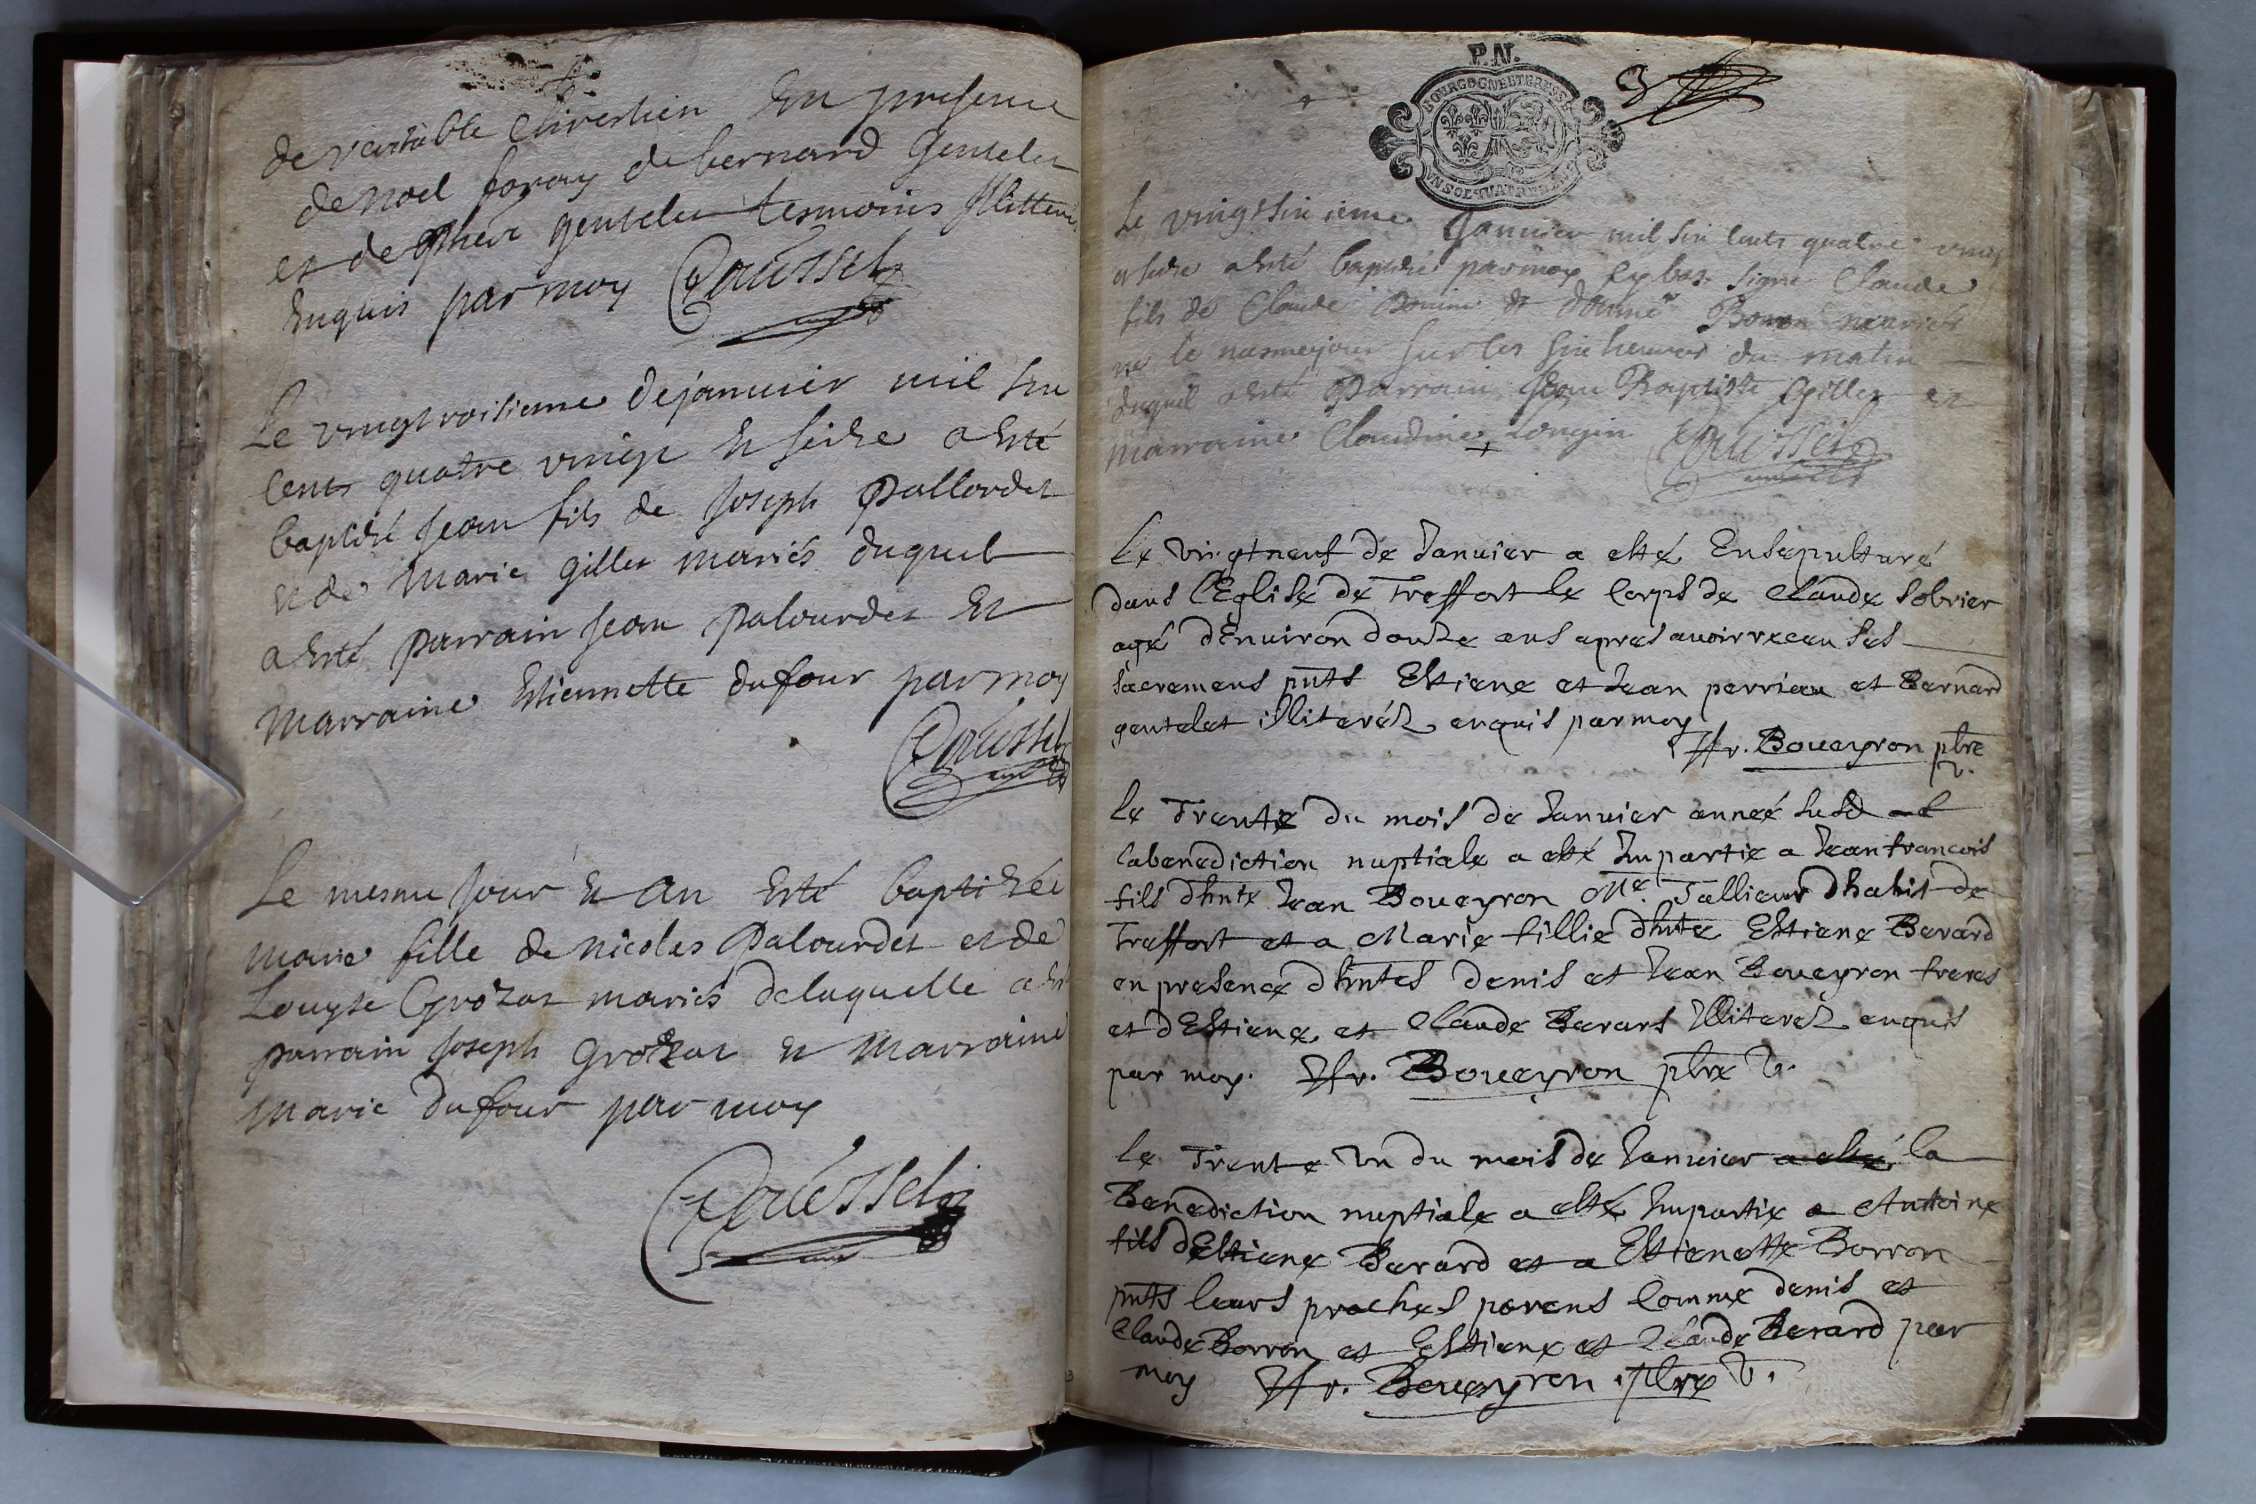 de veritable chrestien En presence
de noel foray de bernard Gentelet
et de gentelet tesmoins Illitterés
Enquis par moy
Le vingt troisieme de janvier mil six
Cents quatre vingt et seize a esté
baptisé Jean fils de Joseph Pallordet
et de marie gillet mariés duquel
a esté parrain Jean palourdet Et
marraine Estiennette dufour par moy
Le mesme Jour et an Esté baptizée
marie fille de nicolas Palourdet et de
Louyse Grozat mariés de laquelle a esté
parrain Joseph Grozat et marraine
marie Dufour par moy
P.N.
BOURGOGNE ET BRESSE
UN SOL QUATRE DEN
3
Le vingt sixieme Janvier mil six Cents quatre vingt
et seize a esté baptisé par moy sign Claude
fils de Claude et Bonon mariés
né le mesme jour sur les six heures du matin
duquel a esté Parrain Jean Baptiste Gillet et
marraine Claudine Longin
Le vingt neuf de Janvier a esté Ensepulturé
dans l'Eglise de Treffort le Corps de Claude Sobrier
agé d'Environ douze ans apres avoir receu ses
Sacremens pnts Estiene et Jean perrieu et Bernard
gentelet illiteréz enquis par moy
Boueyron pbre
v.
Le Trente du mois de Janvier année susd
la benediction nuptiale a esté Impartie a Jean francois
fils d'hnte Jean Boueyron Me Tallieur d'habit de
Treffort et a Marie fillie d'hnte Estiene Berard
en presence d'hntes denis et Jean Boueyron freres
et d'Estiene et Claude Berars Illiteréz enquis
par moy. Boueyron pbre v.
Le Trente Un du mois de Janvier a esté la
Benediction nuptiale a esté Impartie a Antoine
fils d'Estiene Berard et a Estienette Borron
pnts leurs proches parens Comme denis et
Claude Borron et Estiene et Claude Berard par
moy Boueyron pbre v.